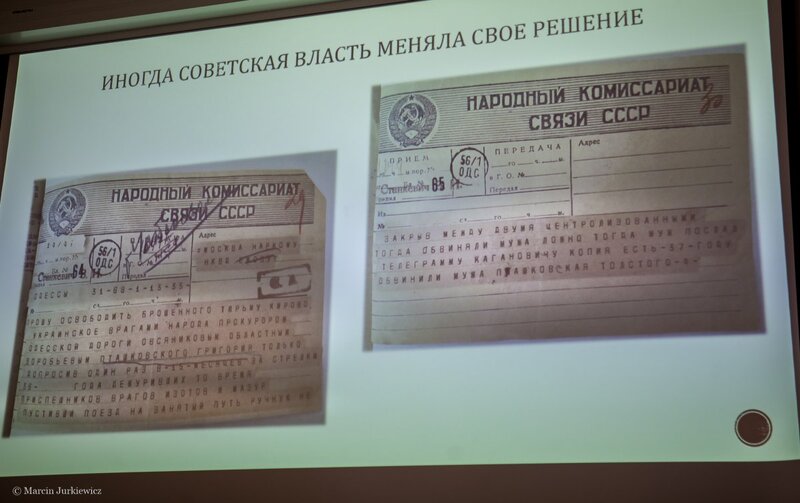 ИНОГДА СОВЕТСКАЯ ВЛАСТЬ МЕНЯЛА СВОЕ РЕШЕНИЕ
НАРОДНЫЙ КОМИССАРИАТ
СВЯЗИ СССР
56/1
ОДС
64
МОСКВА НАРКОМУ
НКВД
ОДЕССЫ
ПРОШУ ОСВОБОДИТЬ БРОШЕННОГО ТЮРЬМУ
УКРАИНСКОЕ ВРАГАМИ НАРОДА ПРОКУРОРОМ
ОДЕССКОЙ ДОРОГИ ОВСЯНИКОВЫМ ОБЛАСТНЫМ
ВОРОБЬЕВЫМ ПТАШКОВСКОГО ГРИГОРИЯ ТОЛЬКО
ДОПРОСИВ ОДИН РАЗ МЕСЯЦЕВ ЗА СТРЕЛКИ
36- ГОДА ДЕЖУРИВШИХ ТО ВРЕМЯ
ПРИСПЕШНИКОВ ВРАГОВ ИЗОТОВ И МАЗУР
ПУСТИВШИ ПОЕЗД НА ЗАНЯТЫЙ ПУТЬ РУЧНУЮ НЕ
НАРОДНЫЙ КОМИССАРИАТ
СВЯЗИ СССР
30
ПРИЕМ
56/1
ОДС
ПЕРЕДАЧА
Адрес
65
в Г. О. №
Передал
Из
№
ЗАКРЫВ МЕЖДУ ДВУМЯ ЦЕНТРОЛИЗОВАННЫМИ
ТОГДА ОБВИНЯЛИ МУЖА ЛОЖНО ТОГДА МУЖ ПОСЛАЛ
ТЕЛЕГРАММУ КАГАНОВИЧУ КОПИЯ ЕСТЬ-37-ГОДУ
ОБВИНИЛИ МУЖА ПТАШКОВСКАЯ ТОЛСТОГО
© Marcin Jurkiewicz